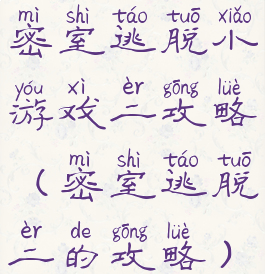 mì shì táo tuō xiǎo
密室逃脱小
yóu xì èr gōng lüè
游戏二攻略
mì shì táo tuō
(密室逃脱
èr de gōng lüè
二的攻略)